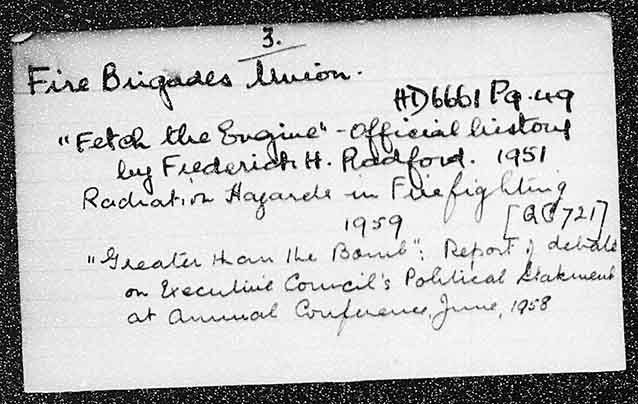 3.
Fire Brigades Union.
HD6661 Pq.49
"Fetch the Engine" - Official history
by Frederick H. Radford. 1951
Radiation Hazards in Firefighting
1959 [QC721]
"Greater than the Bomb": Report of debate
on Executive Council's Political Statement
at Annual Conference, June, 1958